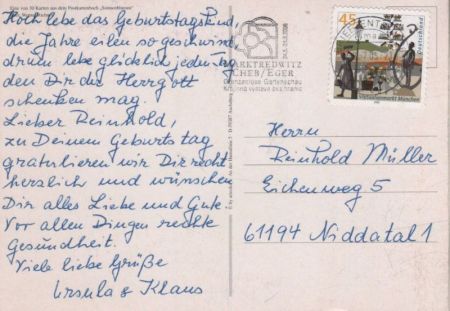 Eine von 30 Karten aus dem Postkartenbuch „Sonnenblumen“
Hoch lebe das Geburtstagskind,
die Jahre eilen so geschwind,
drum lebe glücklich jeden Tag
den Dir der Herrgott
schenken mag.
Lieber Reinhold,
zu Deinem Geburtstag
gratulieren wir Dir recht
herzlich und wünschen
Dir alles Liebe und Gute
Vor allen Dingen rechte
Gesundheit.
Viele liebe Grüße
Ursula & Klaus
MARKTREDWITZ
CHEB/EGER
Grenzenlose Gartenschau
45
Deutschland
Viktualienmarkt München
Herrn
Reinhold Müller
Eichenweg 5
61194 Niddatal 1